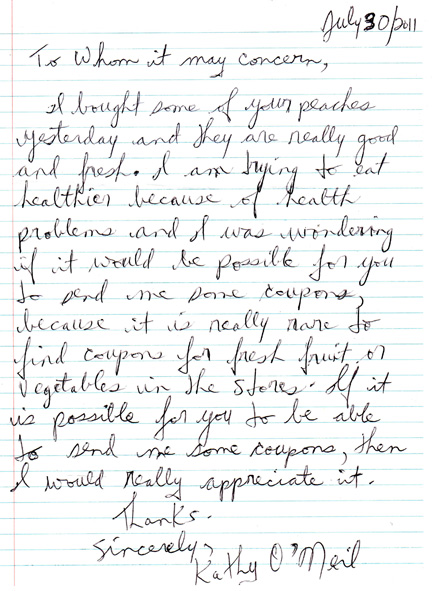 July 30/2011
To Whom it may concern,
I bought some of your peaches
yesterday and they are really good
and fresh. I am trying to eat
healthier because of health
problems and I was wondering
if it would be possible for you
to send me some coupons,
because it is really rare to
find coupons for fresh fruit or
vegetables in the stores. If it
is possible for you to be able
to send me some coupons, then
I would really appreciate it.
Thanks.
Sincerely,
Kathy O'Neil